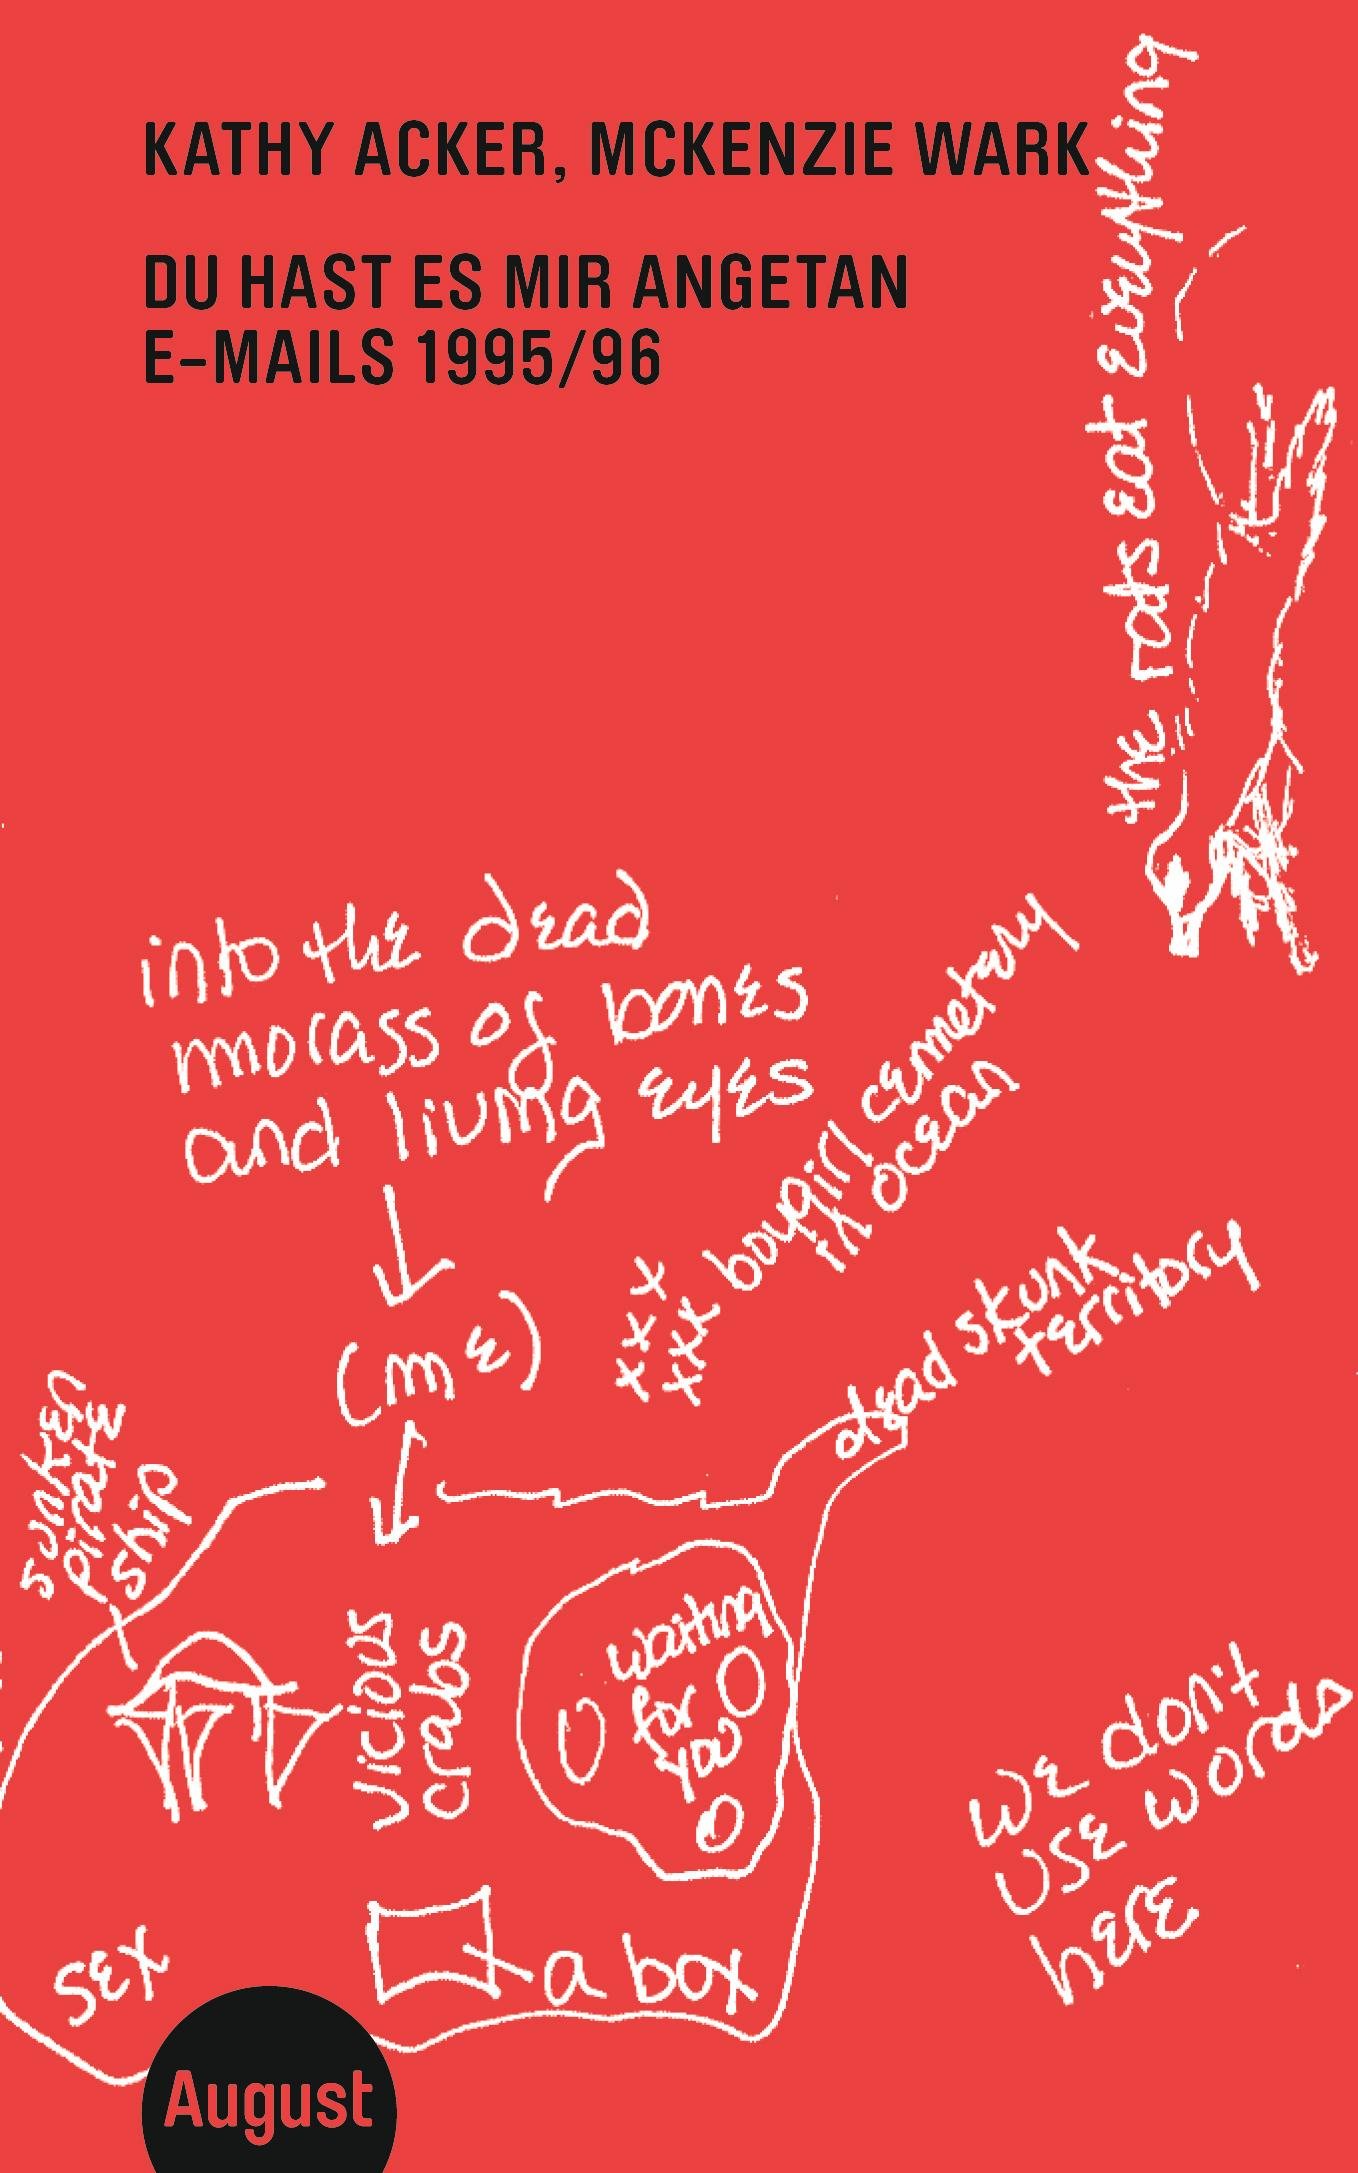 KATHY ACKER, MCKENZIE WARK
DU HAST ES MIR ANGETAN
E-MAILS 1995/96
the rats eat everything
into the dead
morass of bones
and living eyes
(me)
xxx
xxx boygirl cemmetery
in ocean
dead skunk
territory
sunken
pirate
ship
vicious
crabs
waiting
for
you
we don't
use words
here
sex
a box
August